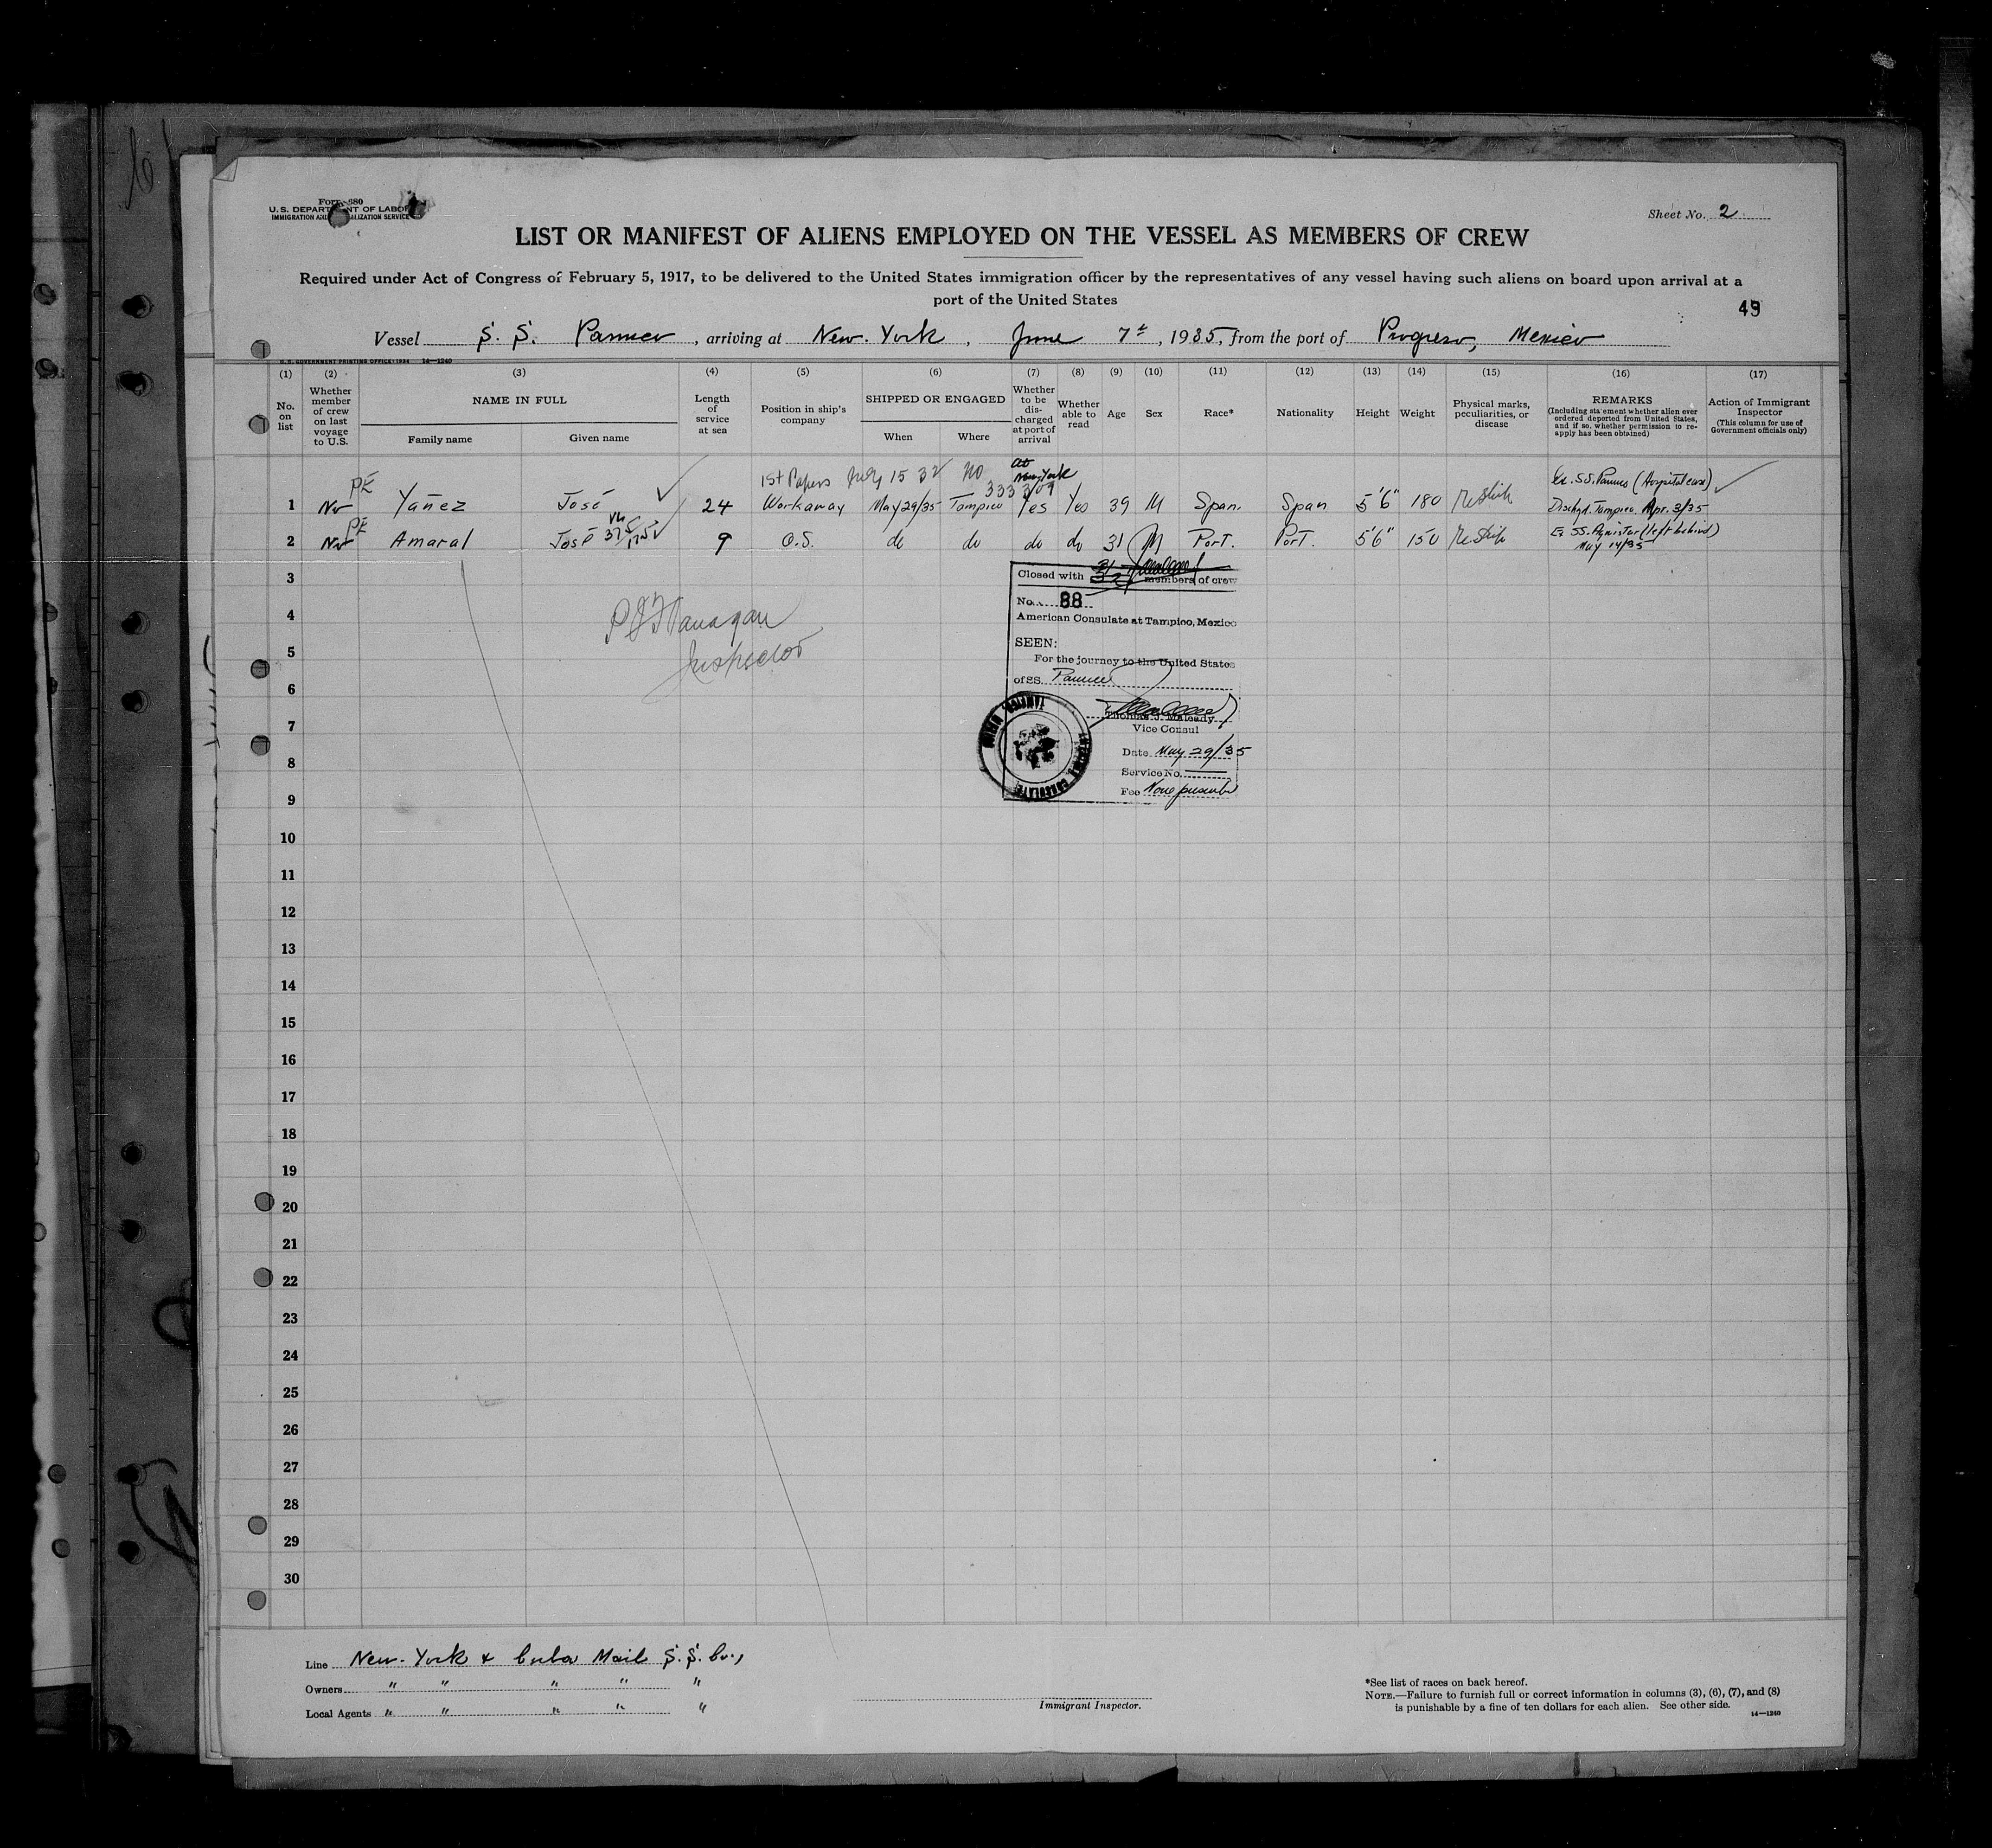 U.S. DEPARTMENT OF LABOR
Sheet No. 2
LIST OR MANIFEST OF ALIENS EMPLOYED ON THE VESSEL AS MEMBERS OF CREW
Required under Act of Congress of February 5, 1917, to be delivered to the United States immigration officer by the representatives of any vessel having such aliens on board upon arrival at a
port of the United States
49
Vessel S. S. Panuco, arriving at New. York, June 7th, 1935, from the port of Progreso, Mexico
U. S. GOVERNMENT PRINTING OFFICE: 1934 14—1240
(1) (2) (3) (4) (5) (6) (7) (8) (9) (10) (11) (12) (13) (14) (15) (16) (17)
No. on list
Whether member of crew on last voyage to U.S.
NAME IN FULL
Family name
Given name
Length of service at sea
Position in ship's company
SHIPPED OR ENGAGED
When
Where
Whether to be discharged at port of arrival
Whether able to read
Age
Sex
Race*
Nationality
Height
Weight
Physical marks, peculiarities, or disease
REMARKS
(Including statement whether alien ever ordered deported from United States, and if so, whether permission to reapply has been obtained)
Action of Immigrant Inspector
(This column for use of Government officials only)
1st Papers July 15 32 NO at New York
1 No PE Yañez José 24 Workaway May 29/35 Tampico Yes Yes 39 M Span. Span 5'6" 180 Ex. S.S. Panuco (Hospital case)
Dischgd. Tampico. Apr. 3/35
2 No PE Amaral José 9 O.S. do do do do 31 M Port. Port. 5'6" 150 Ex SS. Agwistar (left behind)
May 14/35
3
Closed with members of crew
No. 88
4
American Consulate at Tampico, Mexico
P J Flanagan
Inspector
5
SEEN:
For the journey to the United States
6
of SS. Panuco
7
Thomas J. Maleady
Vice Consul
8
Date May 29/35
Service No.
9
Fee None prescribed
10
11
12
13
14
15
16
17
18
19
20
21
22
23
24
25
26
27
28
29
30
Line New. York & Cuba Mail S. S. Co.,
Owners " " " " "
Local Agents " " " " "
Immigrant Inspector.
*See list of races on back hereof.
NOTE.—Failure to furnish full or correct information in columns (3), (6), (7), and (8)
is punishable by a fine of ten dollars for each alien. See other side.
14—1240